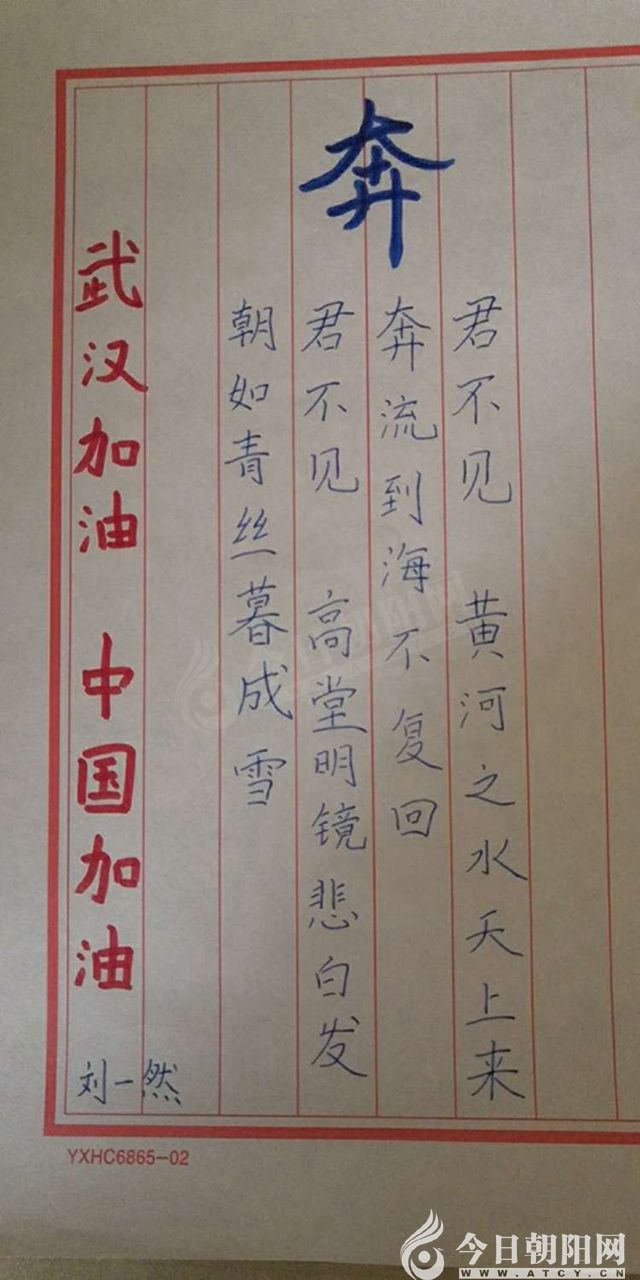 奔
君不见 黄河之水天上来
奔流到海不复回
君不见 高堂明镜悲白发
朝如青丝暮成雪
武汉加油 中国加油
刘一然
YXHC6865-02
今日朝阳网
今日朝阳网
WWW.ATCY.CN